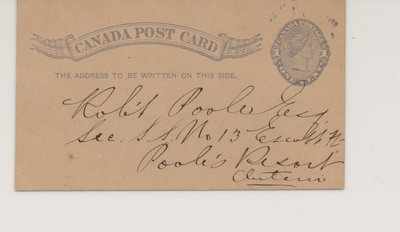 CANADA POST CARD
THE ADDRESS TO BE WRITTEN ON THIS SIDE.
Robt Poole Esq
Sec. S.S. No 13 Escott
Poole's Resort
Ontario